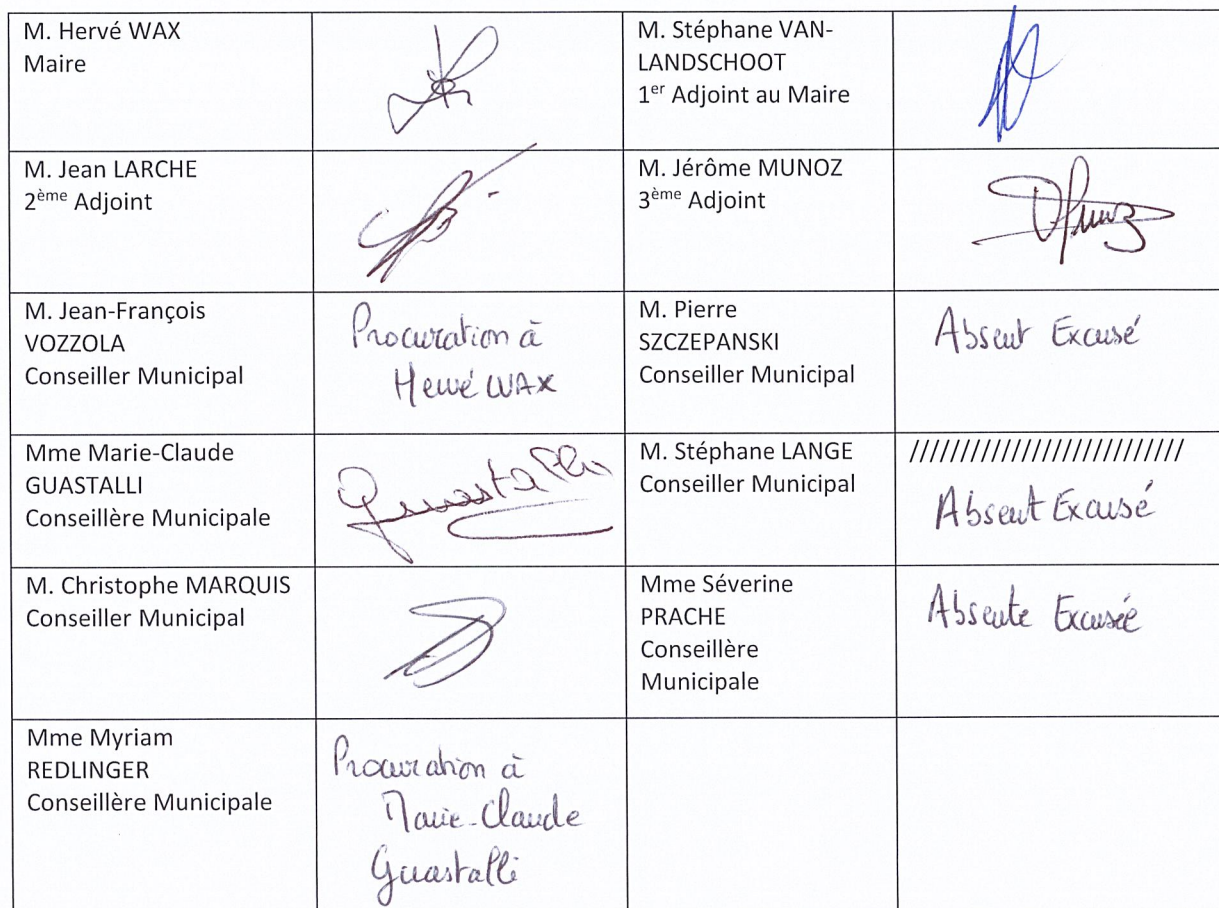 M. Hervé WAX
Maire
M. Stéphane VAN-
LANDSCHOOT
1er Adjoint au Maire
M. Jean LARCHE
2ème Adjoint
M. Jérôme MUNOZ
3ème Adjoint
M. Jean-François
VOZZOLA
Conseiller Municipal
Procuration à
Hervé WAX
M. Pierre
SZCZEPANSKI
Conseiller Municipal
Absent Excusé
Mme Marie-Claude
GUASTALLI
Conseillère Municipale
Guastalli
M. Stéphane LANGE
Conseiller Municipal
///////////////////////////
Absent Excusé
M. Christophe MARQUIS
Conseiller Municipal
Mme Séverine
PRACHE
Conseillère
Municipale
Absente Excusée
Mme Myriam
REDLINGER
Conseillère Municipale
Procuration à
Marie-Claude
Guastalli